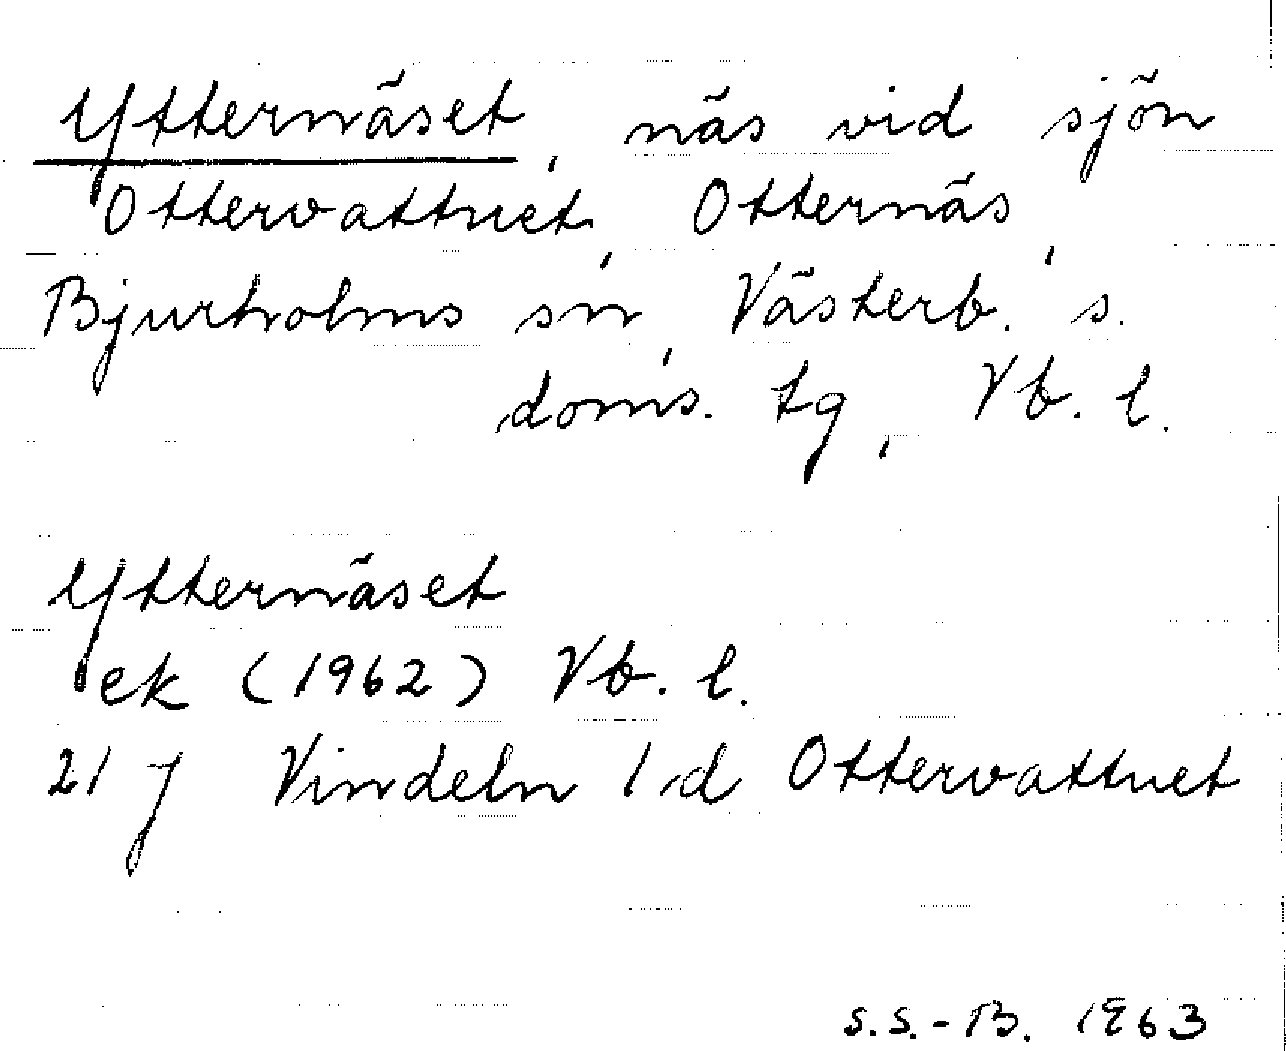 Ytternäset, näs vid sjön
Ottervattnet, Otternäs,
Bjurholms sn, Västerb:s.
doms. tg, Vb. l.
Ytternäset
ek (1962) Vb. l.
21 J Vindeln 1 d Ottervattnet
S.S.-B. 1963